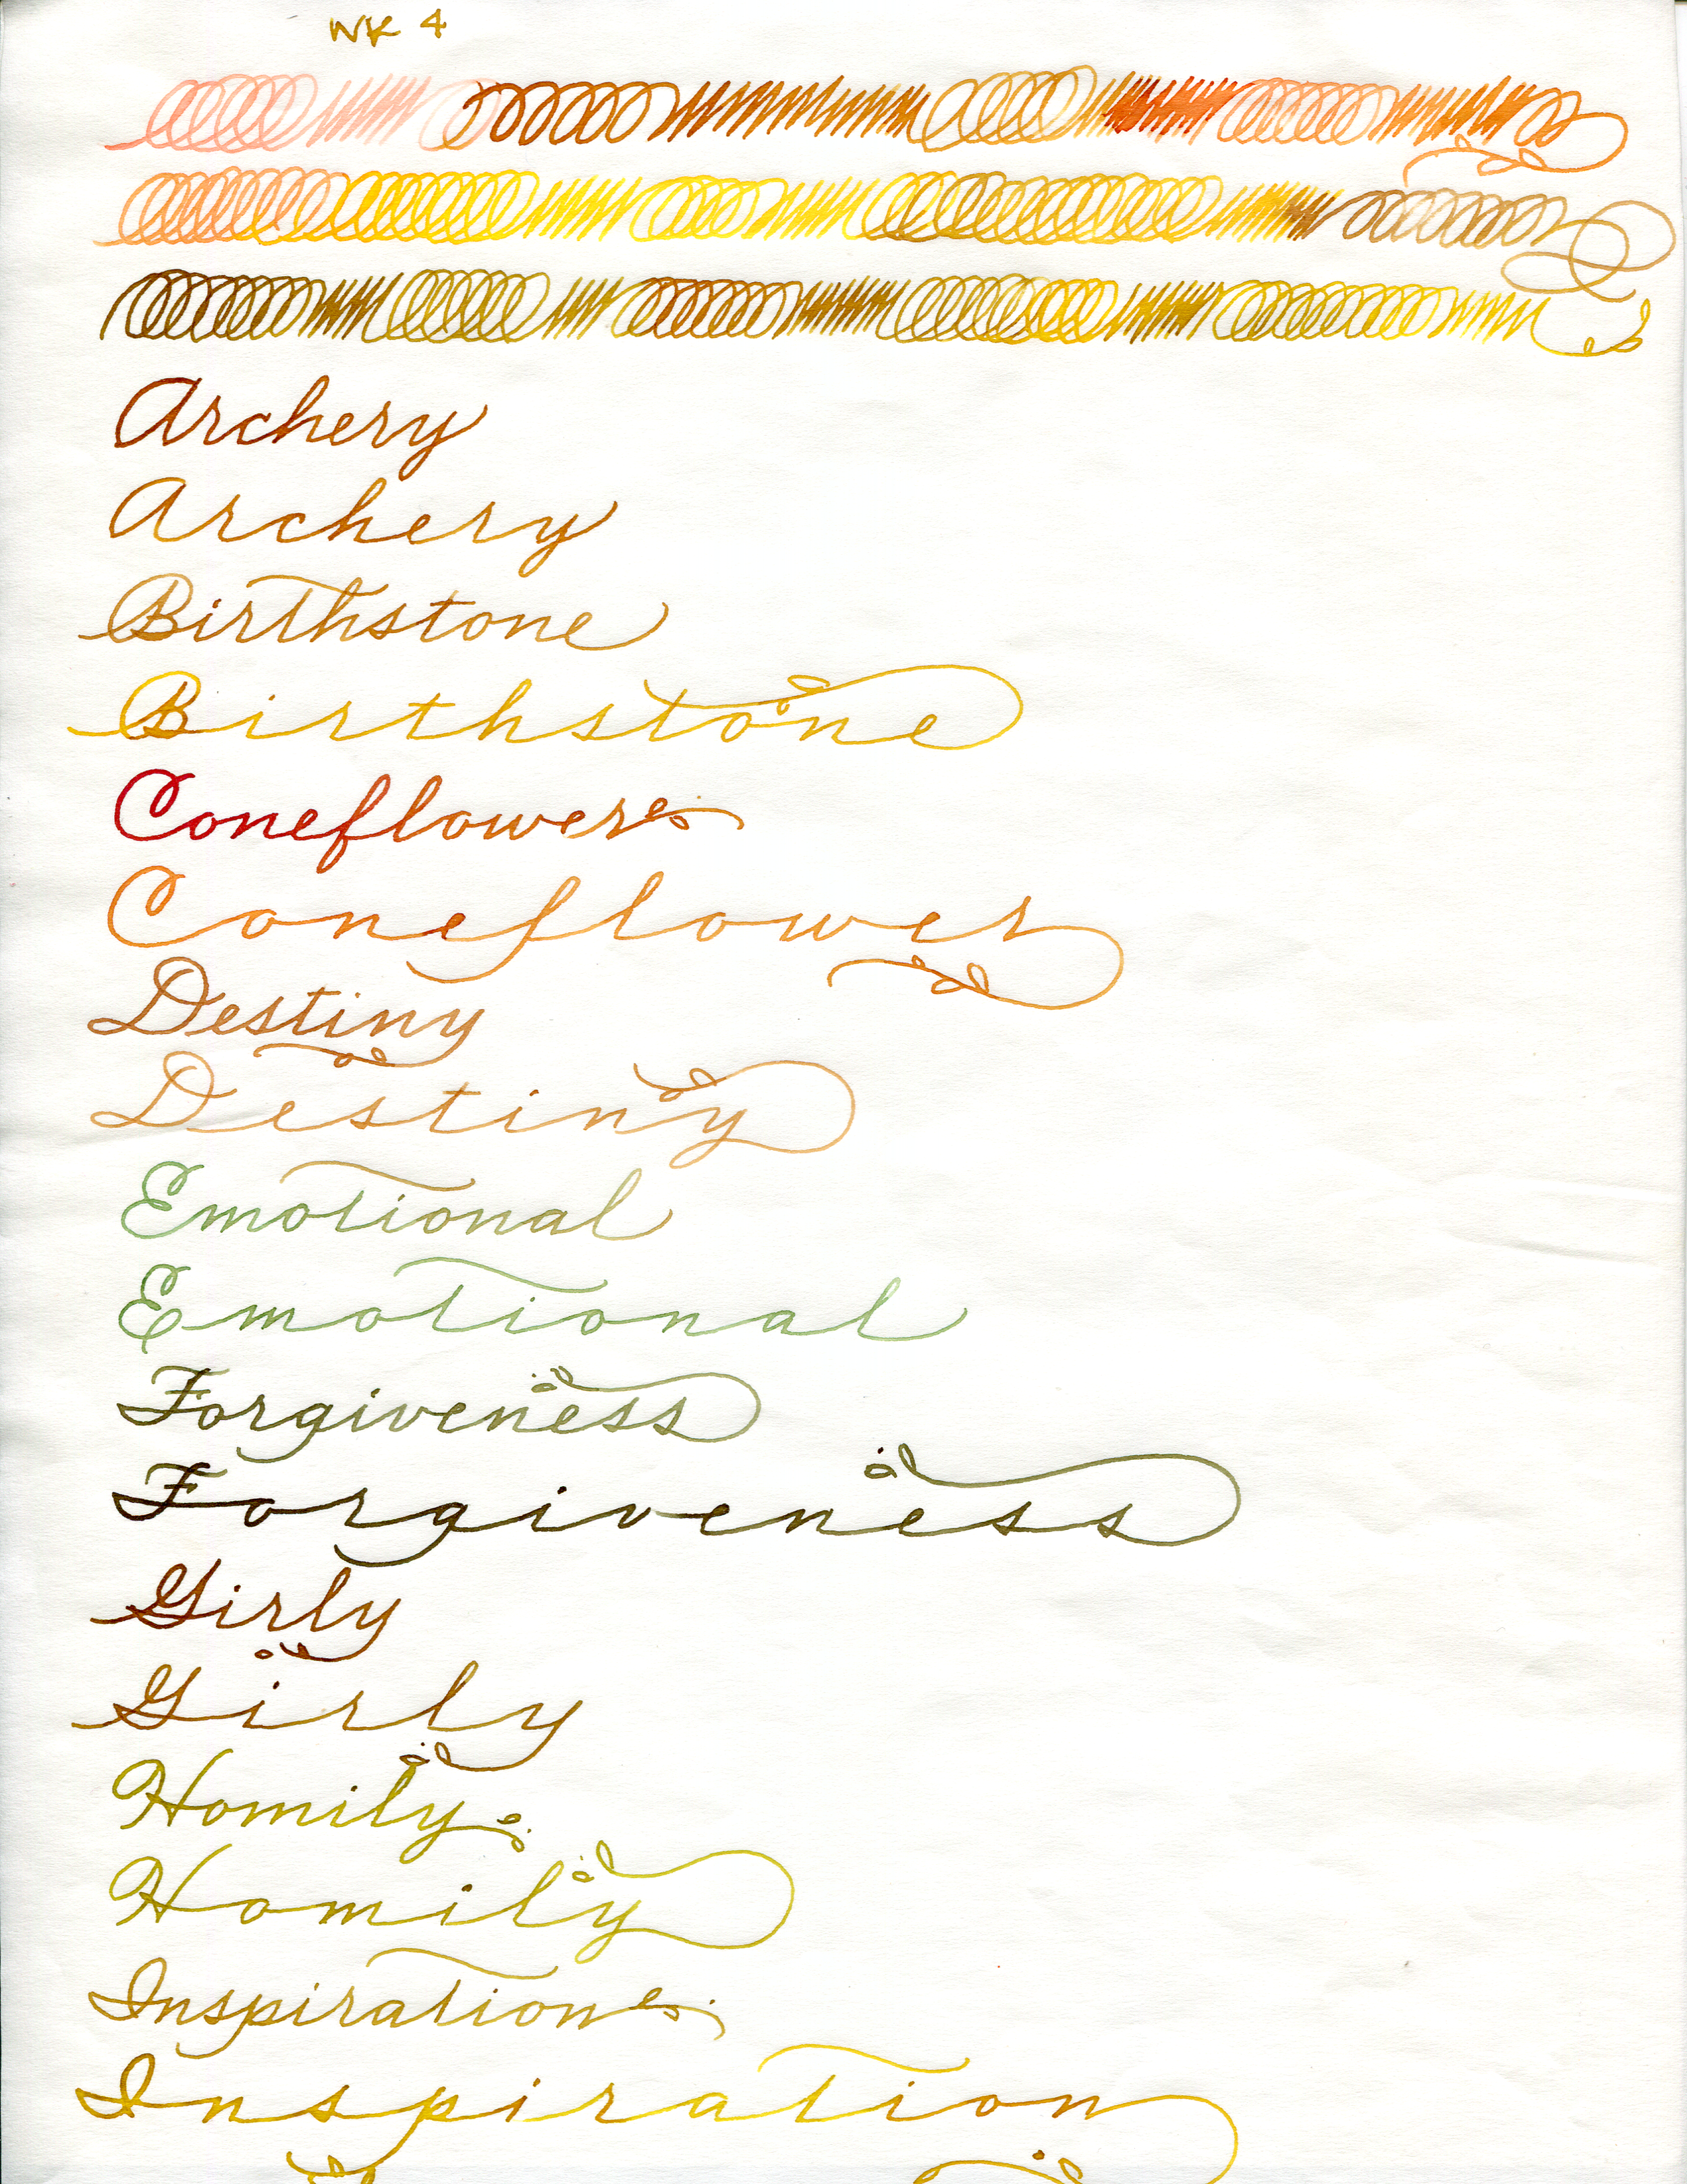 WK 4
Archery
Archery
Birthstone
Birthstone
Coneflower
Coneflower
Destiny
Destiny
Emotional
Emotional
Forgiveness
Forgiveness
Girly
Girly
Homily
Homily
Inspiration
Inspiration